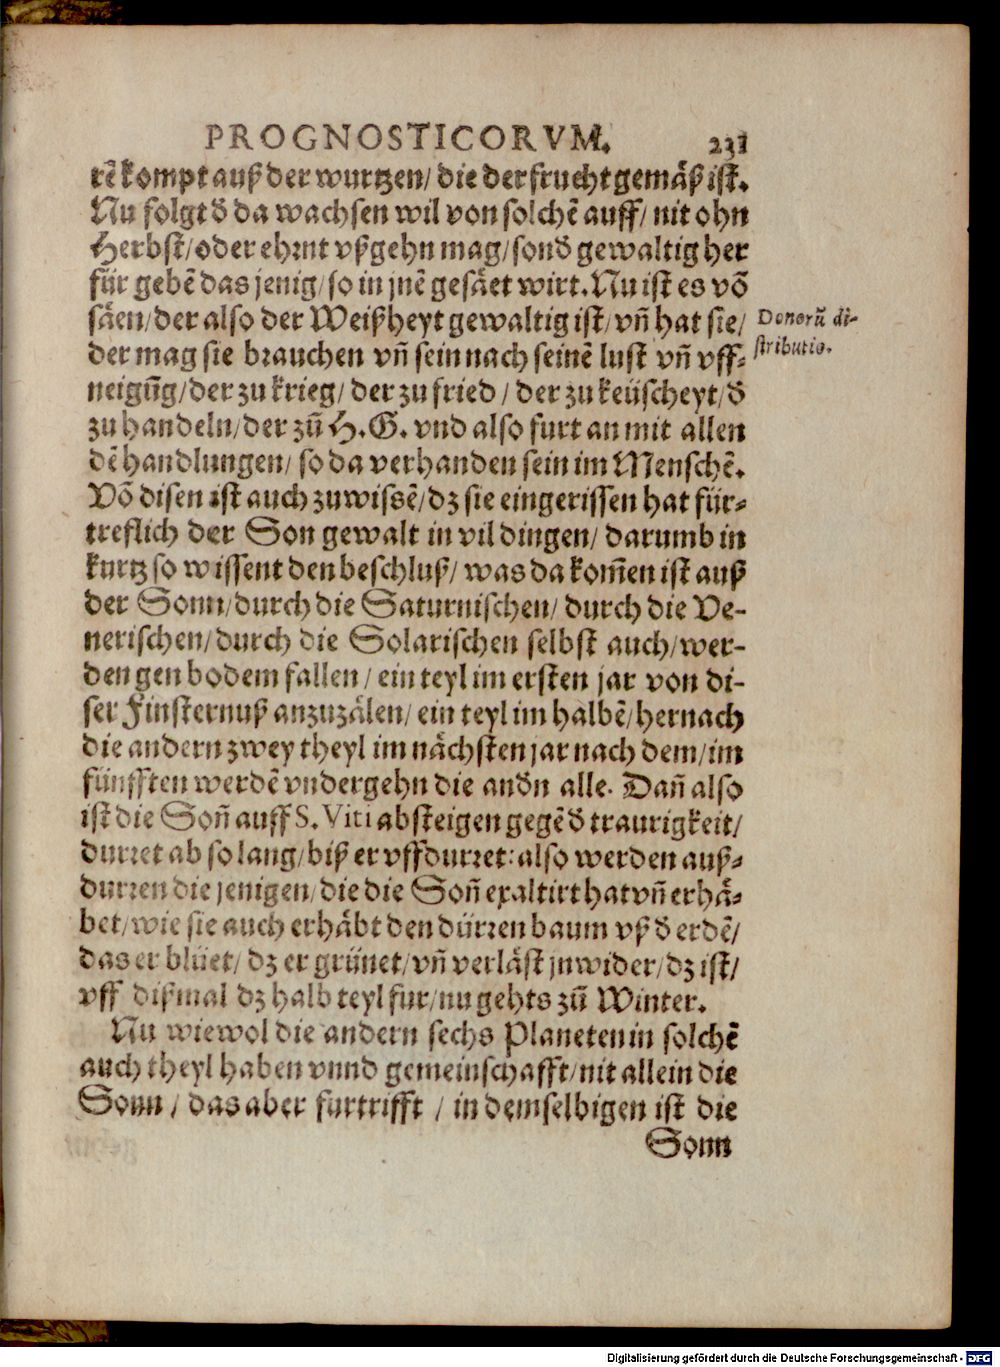 PROGNOSTICORVM. 231
rē kompt auß der wurtzen/ die der frucht gemäß ist.
Nu folgt d̕ da wachsen wil von solchē auff/ nit ohn
Herbst/ oder ehrnt vßgehn mag/ sond̕ gewaltig her
für gebē das jenig/ so in jnē gesäet wirt. Nu ist es vō
säen/ der also der Weißheyt gewaltig ist/ vñ hat sie/
Donorū di-
stributio.
der mag sie brauchen vñ sein nach seinē lust vñ vff-
neigūg/ der zu krieg/ der zu fried/ der zu keüscheyt/ d̕
zu handeln/ der zū H. G. vnd also furt an mit allen
dē handlungen/ so da verhanden sein im Menschē.
Vō disen ist auch zuwissē/ dz sie eingerissen hat für-
treflich der Son gewalt in vil dingen/ darumb in
kurtz so wissent den beschluß/ was da kom̄en ist auß
der Sonn/ durch die Saturnischen/ durch die Ve-
nerischen/ durch die Solarischen selbst auch/ wer-
den gen bodem fallen/ ein teyl im ersten jar von di-
ser Finsternuß anzuzälen/ ein teyl im halbē/ hernach
die andern zwey theyl im nächsten jar nach dem/ im
fünfften werdē vndergehn die and̕n alle. Dañ also
ist die Soñ auff S. Viti absteigen gegē d̕ traurigkeit/
durret ab so lang/ biß er vffdurret: also werden auß-
durren die jenigen/ die die Soñ exaltirt hat vñ erhä-
bet/ wie sie auch erhäbt den dürren baum vß d̕ erdē/
das er blüet/ dz er grünet/ vñ verläst jn wider/ dz ist/
vff dißmal dz halb teyl fur/ nu gehts zū Winter.
Nu wiewol die andern sechs Planeten in solchē
auch theyl haben vnnd gemeinschafft/ nit allein die
Sonn/ das aber furtrifft/ in demselbigen ist die
Sonn
Digitalisierung gefördert durch die Deutsche Forschungsgemeinschaft - DFG